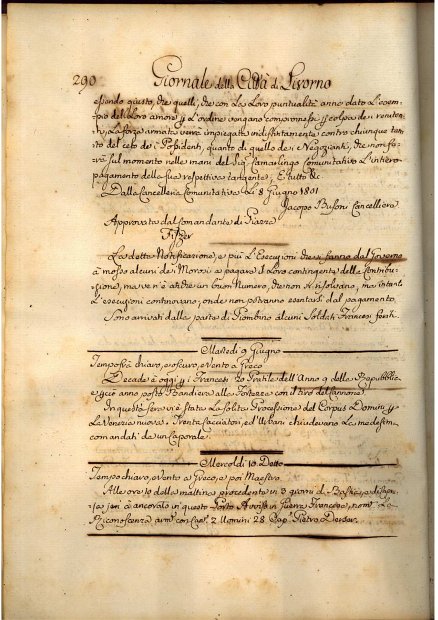 290 Giornale della Città di Livorno
essendo giusto, che quelli, che con la loro puntualità anno dato l'esem=
pio del loro amore p l'ordine vengano compromessi p colpa dei reniten=
ti, la forza armata verrà impiegata indistintamente contro chiunque tan=
to del ceto de Possidenti, quanto di quello dei Negozianti, che non fa=
rà sul momento nelle mani del Sig. Camarlingo Comunitativo l'intiero
pagamento della sua respettiva tangente. E tutto &c.
Dalla Cancelleria Comunitativa li 8 Giugno 1801
Jacopo Busoni Cancelliere
Approvata dal Comandante di Piazza
La detta Notificazione, e più l'Esecuzioni che si fanno dal Governo
à mosso alcuni dei Morosi a pagare il loro contingente della Contribu=
zione, ma ve n'è anche un buon Numero, che non si risolvano, ma intanto
l'esecuzioni continovano, onde non potranno esentarsi dal pagamento.
Sono arrivati dalla parte di Piombino alcuni Soldati Francesi
Martedì 9 Giugno
Tempo stà chiaro, e scuro, e Vento a Greco
Decade à oggi p i Francesi 20 Pratile dell'Anno 9 della Repubblica
e p ciò anno posto Bandiera alle Fortezze con il tiro del Cannone
In questa sera vi è stata la solita Processione del Corpus Domini p
la Venezia nuova. Trenta Cacciatori, ed Urbani chiudevano la medesima
comandati da un Caporale.
Mercoldì 10 Detto
Tempo chiaro, e Vento a Greco, e poi Maestro
Alle ore 10 della mattina procedente in 3 giorni da Bastia, e di Capra=
ja jeri à ancorato in questo Porto Avviso in Guerra Francese, nom.° La
Riconoscenza arm.° con Can.ⁱ 2 Uomini 28 Cap. Pietro